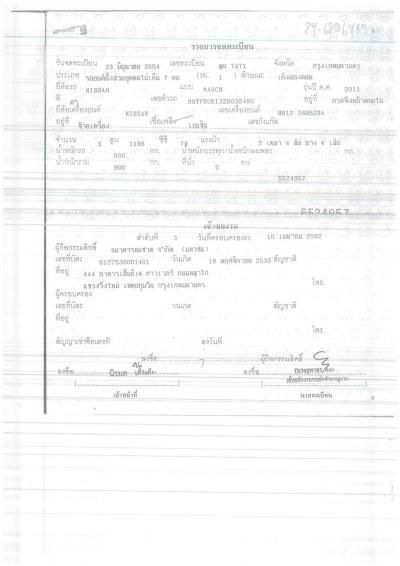 รายการจดทะเบียน
วันจดทะเบียน 23 มิถุนายน 2554 เลขทะเบียน ฆน 7471 จังหวัด กรุงเทพมหานคร
ประเภท รถยนต์นั่งส่วนบุคคลไม่เกิน 7 คน (รย. 1 ) ลักษณะ เก๋งสองตอน
ยี่ห้อรถ NISSAN แบบ MARCH รุ่นปี ค.ศ. 2011
สี เลขตัวรถ อยู่ที่
ยี่ห้อเครื่องยนต์ NISSAN เลขเครื่องยนต์ HR12 368529A
อยู่ที่ ซ้ายเครื่อง เชื้อเพลิง เบนซิน เลขถังแก๊ส
จำนวน 3 สูบ 1198 ซีซี 79 แรงม้า 2 เพลา 4 ล้อ ยาง 4 เส้น
น้ำหนักรถ 900 กก. น้ำหนักบรรทุก/น้ำหนักลงเพลา กก.
น้ำหนักรวม 900 กก. ที่นั่ง 5 คน
5524957
5524957
เจ้าของรถ
ลำดับที่ 3 วันที่ครอบครองรถ 10 เมษายน 2562
ผู้ถือกรรมสิทธิ์ ธนาคารธนชาต จำกัด (มหาชน)
เลขที่บัตร 0107536001401 วันเกิด 19 พฤศจิกายน 2536 สัญชาติ
ที่อยู่ 444 อาคารเอ็มบีเค ทาวเวอร์ ถนนพญาไท
แขวงวังใหม่ เขตปทุมวัน กรุงเทพมหานคร โทร.
ผู้ครอบครอง
เลขที่บัตร วันเกิด สัญชาติ
ที่อยู่
โทร.
สัญญาเช่าซื้อเลขที่ ลงวันที่
ลงชื่อ ผู้ถือกรรมสิทธิ์
ลงชื่อ ลงชื่อ
เจ้าหน้าที่ นายทะเบียน